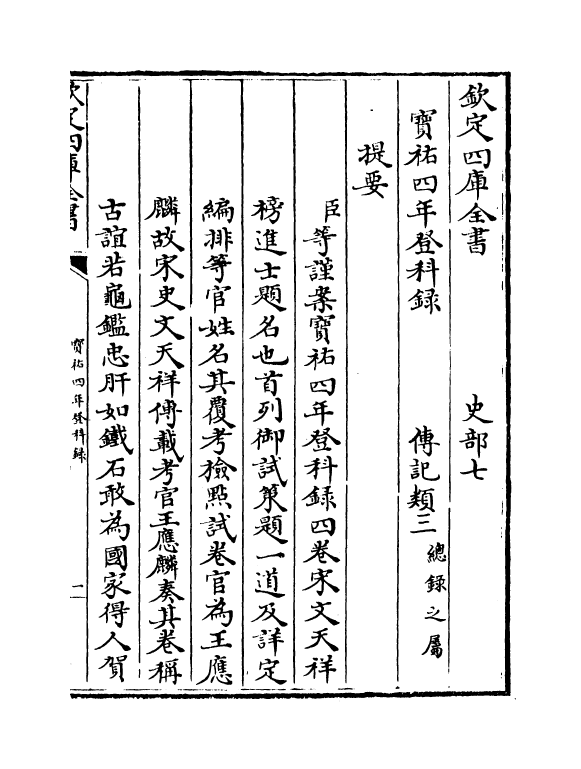 欽定四庫全書　史部七
寶祐四年登科録　傳記類三　總録之屬
提要
臣等謹案寶祐四年登科録四卷宋文天祥
榜進士題名也首列御試策題一道及詳定
編排等官姓名其覆考檢㸃試卷官為王應
麟故宋史文天祥傳載考官王應麟奏其卷稱
古誼若龜鑑忠肝如鐵石敢為國家得人賀
欽定四庫全書
寶祐四年登科録
一